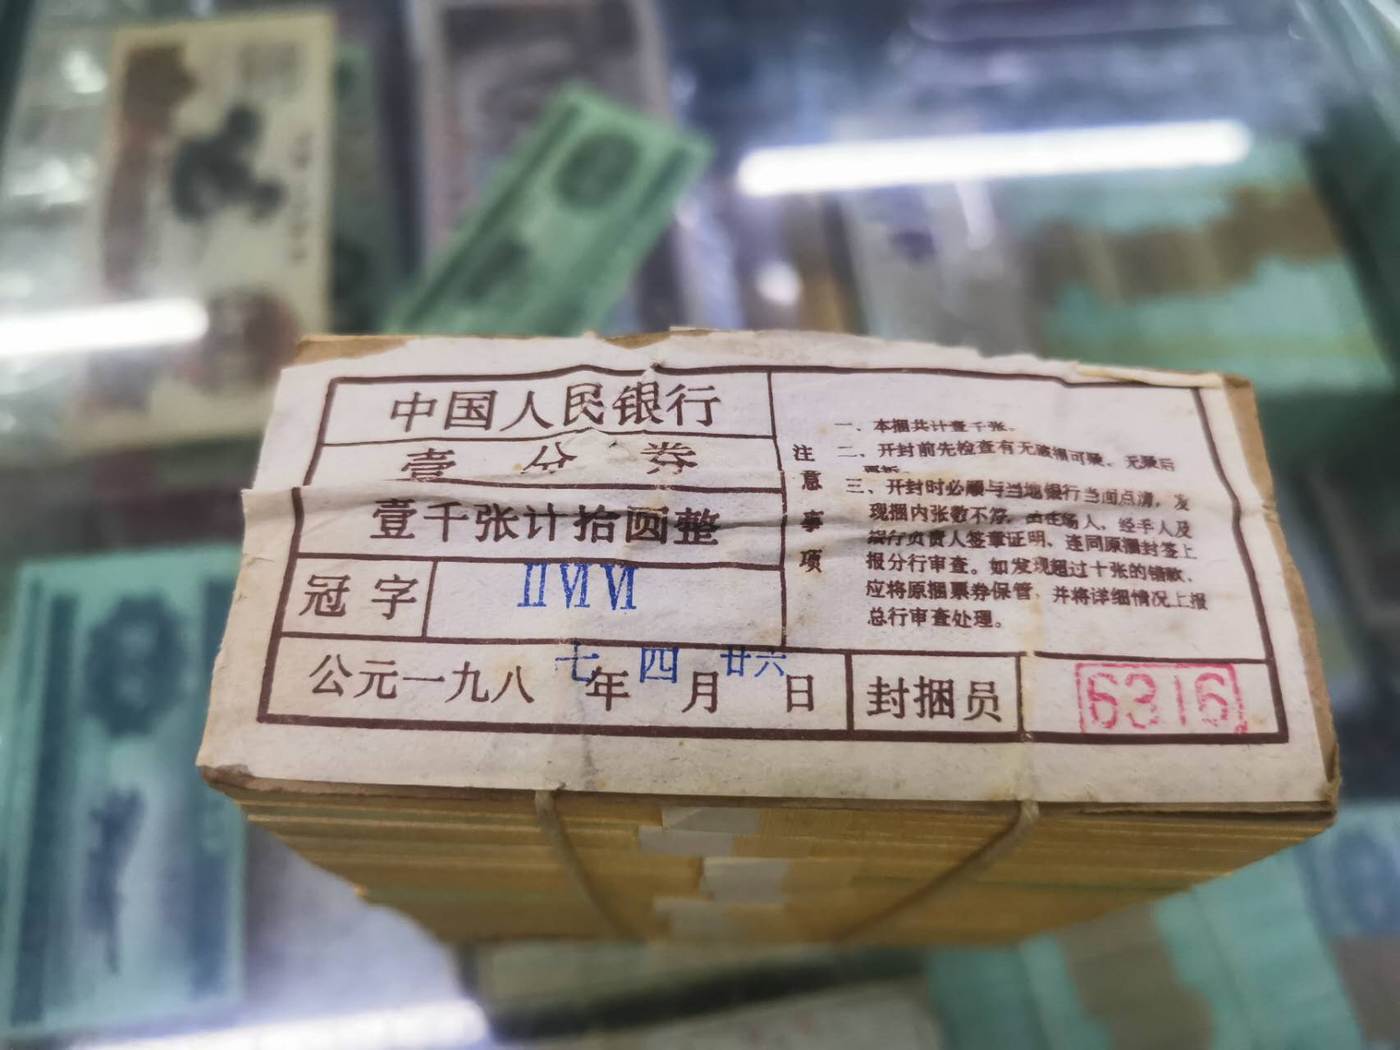 中国人民银行
壹分券
壹千张计拾圆整
冠字 ⅡⅥⅥ
公元一九八七年四月廿六日 封捆员 6316
注意事项
一、本捆共计壹千张。
二、开封前先检查有无破损可疑、无疑后
三、开封时必顺与当地银行当面点清，发
现捆内张数不符，由在场人、经手人及
银行负责人签章证明、连同原捆封签上
报分行审查。如发现超过十张的错款、
应将原捆票券保管，并将详细情况上报
总行审查处理。